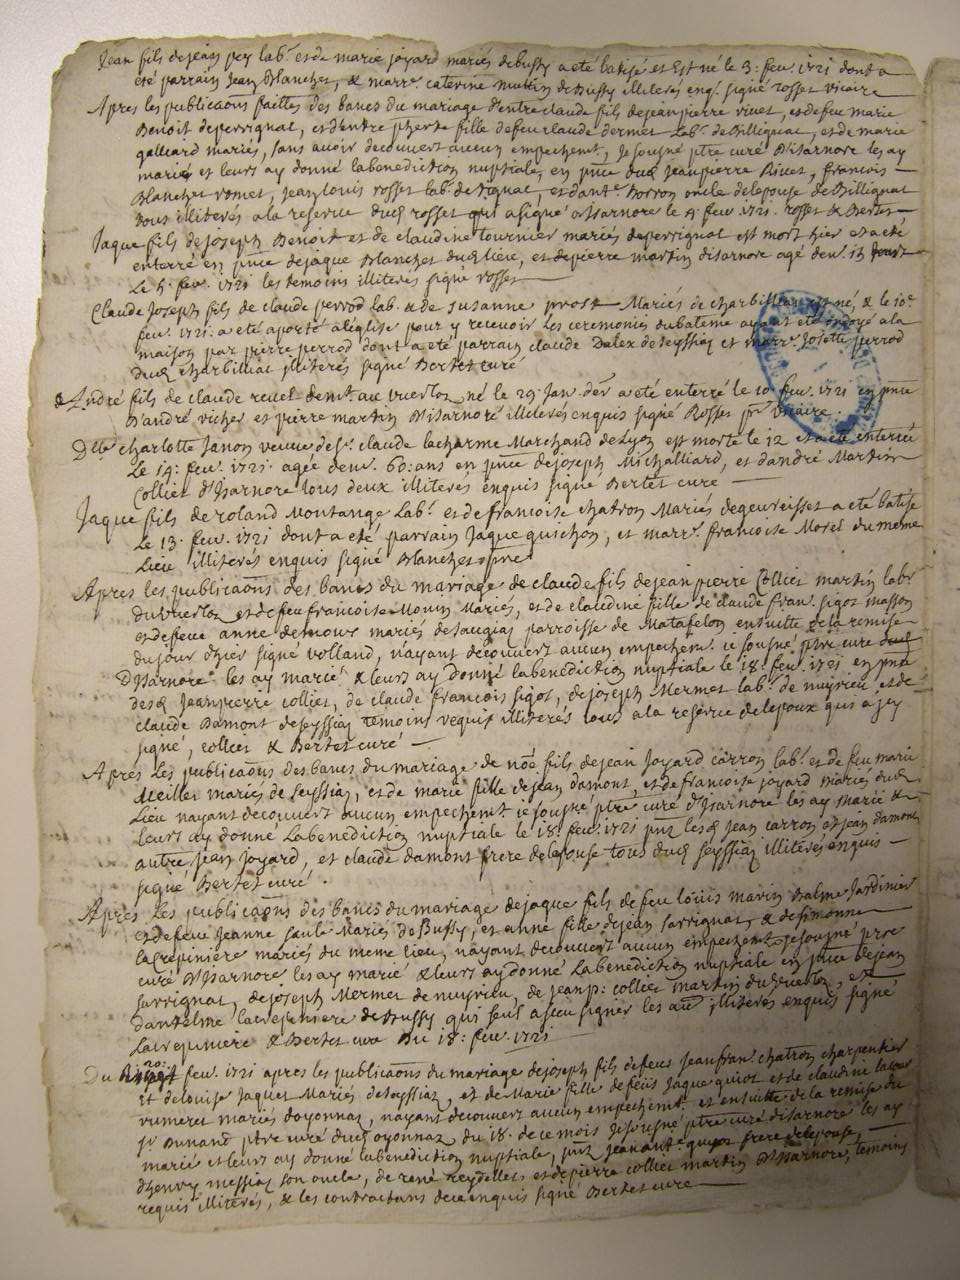 Jean fils de jean pey lab.r et de marie joyard mariés de bussy a eté batisé et Est né le 3: feu. 1721 dont a
eté parrain Jean Blanchet, & marr.e caterine de Bussy illiterés enq. signé rosset vicaire
Apres les publicaõns faittes des bancs du mariage d'entre claude fils de jean pierre rivet, et de feue marie
Benoit de perrignat, et d'entre fille de feu claude dermet Lab.r de Billignat, et de marie
galliard mariés, sans avoir decouvert aucun empechemt, Je sousigné ptre curé D'isarnore les ay
mariés et leurs ay donné la benediction nuptiale, en pnce dud. Jean pierre Rivet, francois
Blanchet romet, Jean louis rosset lab.r de signat, et d'ant.e Borron oncle de l'epouse de Billignat
tous illiterés a la reserve dud. rosset qui a signé a Isarnore le 4 feu. 1721. rosset & Bertet
Jaque fils de joseph Benoit et de claudine tournier mariés de perrignat est mort hier et a eté
enterré en pnce de jaque Blanchet dud. lieu, et de pierre martin d'isarnore agé denv. 15
Le 5. feu. 1721 les temoins illiterés signé rosset
Claude Joseph fils de claude perrod lab. & de suzanne prost Mariés de charbilliat est né & le 10.e
feu. 1721. a eté aporté a l'eglise pour y recevoir les ceremonies du bateme ayant eté ondoyé a la
maison par pierre perrod dont a eté parrain claude Dalex de seyssiat et marr.e Josette perrod
dud. charbilliat illiterés signé Bertet curé
André fils de claude revel demt. au vuerlos né le 29 Jan. der. a eté enterré le 10 feu. 1721 en pnce
D'andré vicher et pierre martin D'isarnore illiterés enquis signé Rosset vicaire
Dlle charlotte Janon veuve de s.r claude lacharme Marchand de Lyon est morte le 12 et a eté enterrée
Le 14: feu. 1721. agée denv. 60: ans en pnce de joseph Michalliard, et d'andré Martin
Collier d'Isarnore tous deux illiterés enquis signé Bertet curé
Jaque fils de roland Montange Lab.r et de francoise chatron Mariés de geureisset a eté batisé
Le 13. feu. 1721 dont a eté parrain Jaque guichon, et marr.e francoise Morel du meme
Lieu illiterés enquis signé Blanchet ptre
Apres les publicaõns des bancs du mariage de claude fils de jean pierre Collier martin labr
du vuerlos et de feu francoise Mariés, et de claudine fille de claude fran. sigot masson
et de feue anne demour mariés de saugiat parroisse de Matafelon ensuitte de la remise
du jour d'hier signé volland, n'ayant decouvert aucun empechem.t ie sousigné ptre curé
D'Isarnore les ay marié & leurs ay donné la benediction nuptiale le 18. feu. 1721 en pnce
desd. Jean pierre collier, de claude francois sigot, de joseph Mermet lab.r de nuyrieu et de
claude Damont de seyssiat temoins requis illiterés tous a la reserve de l'epoux qui a icy
signé, collier & Bertet curé
Apres Les publicaõns des bancs du mariage de noé fils de jean Joyard carron lab.r et de feu marie
Meillet mariés de seyssiat, et de marie fille de jean damont, et de francoise joyard mariés dud.
Lieu n'ayant decouvert aucun empechemt ie sousigné ptre curé D'Isarnore les ay marié &
leurs ay donné La benediction nuptiale le 18: feu. 1721 pnt les d. Jean carron et jean damont
autre jean Joyard, et claude damont frere de l'epouse tous dud. seyssiat illiterés enquis
signé Bertet curé.
Apres Les publicaõns des bancs du mariage de jaque fils de feu louis marin Balme Jardinier
et de feue Jeanne Mariés de Bussy, et anne fille de jean savrignat, & de simonne
lacrepiniere mariés du meme lieu, n'ayant decouvert aucun empechem.t je sousigné ptre
curé D'Isarnore les ay marié & leurs ay donné La benediction nuptiale en pnce de jean
savrignat, de joseph Mermet de nuyrieu, de jean p: collier martin du vuerlos, et
d'antelme lacrepiniere de Bussy qui seul a sceu signer les au. illiterés enquis signé
Lacrepiniere & Bertet curé Du 18: feu. 1721
Du 20: feu. 1721 apres les publicaõns du mariage de joseph fils de feu Jean fran. chatron charpentier
et de louise Jaquet Mariés de seyssiat, et de Marie fille de feus Jaque guiot et de claudine
rumeret mariés d'oyonnaz, n'ayant decouvert aucun empechem.t et ensuitte de la remise du
s.r Dunand ptre curé dud. oyonnaz du 18. de ce mois Je sousigné ptre curé d'isarnore les ay
mariés et leurs ay donné la benediction nuptiale, pnt jean ant.e guiot frere de l'epouse,
d'henry messiat son oncle, de rené reydellet et de pierre collier martin D'Isarnore, temoins
requis illiterés, & les contractans de ce enquis signé Bertet curé